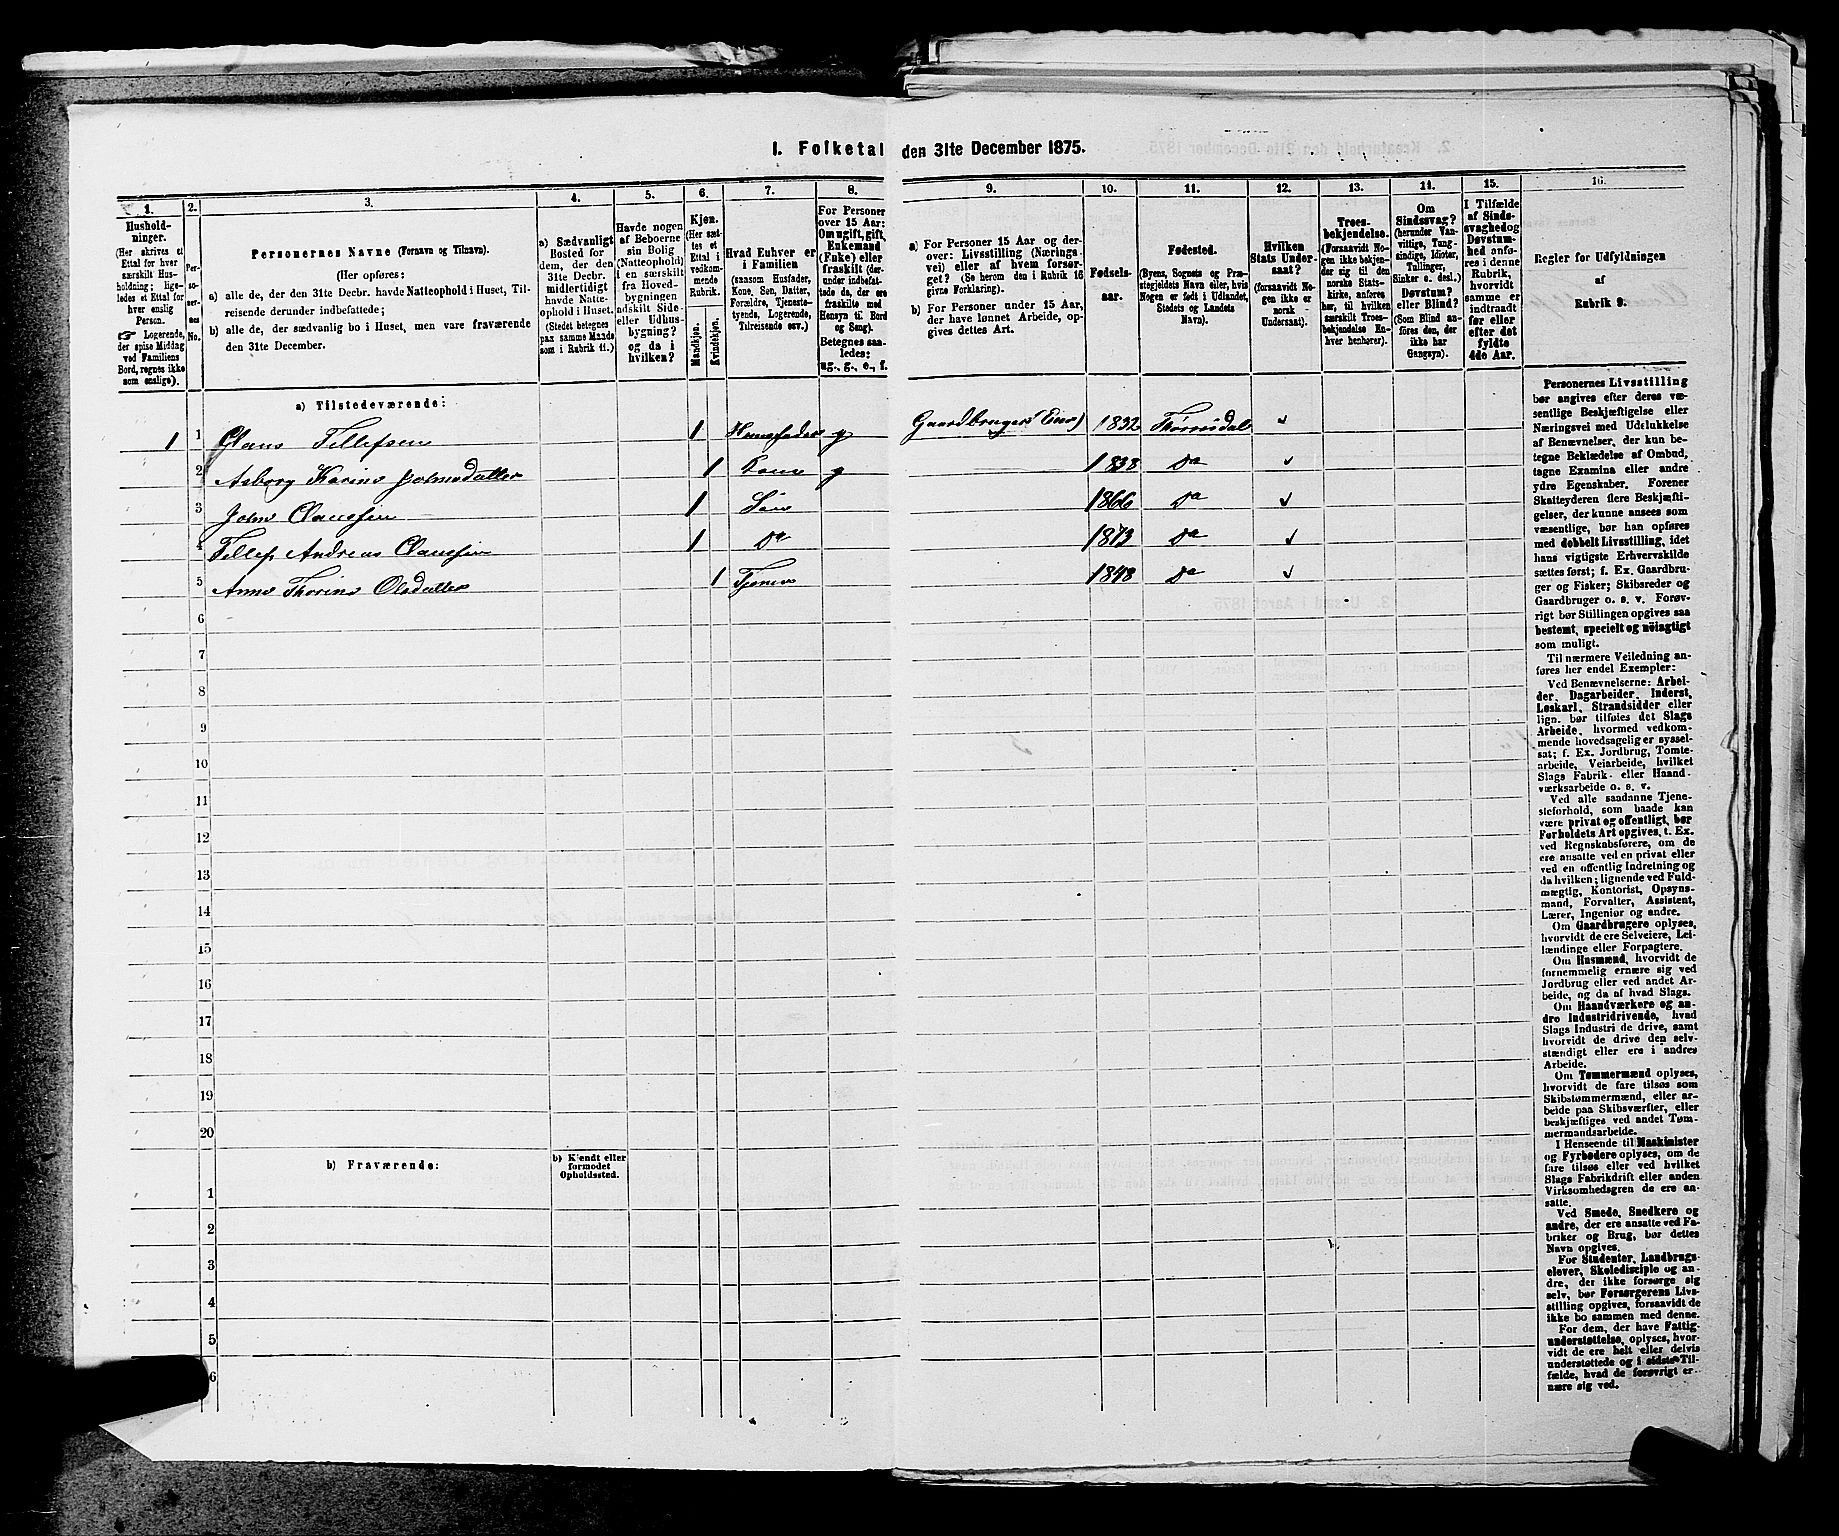 I. Folketal den 31te December 1875.
1. 2. 3. 4. 5. 6. 7. 8. 9. 10. 11. 12. 13. 14. 15. 16.
Hushold-
ninger.
(Her skrives et
Ettal for hver
særskilt Hus-
holdning; lige-
ledes et Ettal for
hver enslig
Person.
☞ Logerende,
der spise Middag
ved Familiens
Bord, regnes ikke
som enslige).
Per-
so-
ner-
nes
No.
Personernes Navne (Fornavn og Tilnavn).
(Her opføres:
a) alle de, der den 31te Decbr. havde Natteophold i Huset, Til-
reisende derunder indbefattede;
b) alle de, der sædvanlig bo i Huset, men vare fraværende
den 31te December.
a) Sædvanligt
Bosted for
dem, der den
31te Decbr.
midlertidigt
havde Natte-
ophold i Huset.
(Stedet betegnes
paa samme Maade
som i Rubrik 11.)
Havde nogen
af Beboerne
sin Bolig
(Natteophold)
i en særskilt
fra Hoved-
bygningen
adskilt Side-
eller Udhus-
bygning?
og da i
hvilken?
Kjøn.
(Her sæt-
tes et
Ettal i
vedkom-
mende
Rubrik.
Mandkjøn.
Kvindekjøn.
Hvad Enhver er
i Familien
(saasom Husfader,
Kone, Søn, Datter,
Forældre, Tjeneste-
tyende, Logerende,
Tilreisende osv.)
For Personer
over 15 Aar:
Om ugift, gift,
Enkemand
(Enke) eller
fraskilt (der-
under indbefat-
tede de, der ere
fraskilte med
Hensyn til Bord
og Seng).
Betegnes saa-
ledes:
ug., g., e., f.
a) For Personer 15 Aar og der-
over: Livsstilling (Nærings-
vei) eller af hvem forsør-
get? (Se herom den i Rubrik 16
givne Forklaring).
b) For Personer under 15 Aar,
der have lønnet Arbeide, op-
gives dettes Art.
Fødsels-
aar.
Fødested.
(Byens, Sognets og Præ-
stegjeldets Navn eller, hvis
Nogen er født i Udlandet,
Stedets og Landets
Navn).
Hvilken
Stats Under-
saat?
(forsaavidt No-
gen ikke er
norsk
Undersaat).
Troes-
bekjendelse.
(Forsaavidt No-
gen ikke bekjen-
der sig til den
norske Stats-
kirke, anføres
her, til hvilken
særskilt Troes-
bekjendelse En-
hver henhører).
Om
Sindssvag?
(herunder Van-
vittige, Tung-
sindige, Idioter,
Tullinger,
Sinker o. desl.)
Døvstum?
eller Blind?
(Som Blind an-
føres den, der
ikke har
Gangsyn).
I Tilfælde
af Sinds-
svaghed og
Døvstum-
hed anfø-
res i denne
Rubrik,
hvorvidt
samme er
indtraadt
før eller
efter det
fyldte
4de Aar.
Regler for Udfyldningen
af
Rubrik 9.
a) Tilstedeværende:
1 1 Claus Tellefsen 1 Huusfader g Gaardbruger (Eier) 1832 Thorisdal
2 Asborg Karine Johnsdatter 1 Kone g 1838 Do
3 John Claussen 1 Søn 1866 Do
4 Tellef Andreas Claussen 1 Do 1873 Do
5 Anne Thorine Olsdatter 1 Tjener 1848 Do
6
7
8
9
10
11
12
13
14
15
16
17
18
19
20
b) Fraværende:
b) Kjendt eller
formodet
Opholdssted.
1
2
3
4
5
6
Personernes Livsstilling
bør angives efter deres væ-
sentlige Beskjæftigelse eller
Næringsvei med Udelukkelse
af Benævnelser, der kun be-
tegne Beklædelse af Ombud,
tagne Examina eller andre
ydre Egenskaber. Forener
Skatteyderen flere Beskjæfti-
gelser, der kunne ansees som
væsentlige, bør han opføres
med dobbelt Livsstilling, idet
hans vigtigste Erhvervskilde
sættes først; f. Ex. Gaardbru-
ger og Fisker; Skibsreder og
Gaardbruger o. s. v. Forøv-
rigt bør Stillingen opgives saa
bestemt, specielt og nöiagtigt
som muligt.
Til nærmere Veiledning an-
føres her endel Exempler:
Ved Benævnelserne: Arbei-
der, Dagarbeider, Inderst,
Løskarl, Strandsidder eller
lign. bør tilføies det Slags
Arbeide, hvormed vedkom-
mende hovedsagelig er syssel-
sat; f. Ex. Jordbrug, Tomte-
arbeide, Veiarbeide, hvilket
Slags Fabrik- eller Haand-
værksarbeide o. s. v.
Ved alle saadanne Tjene-
steforhold, som baade kan
være privat og offentligt, bør
Forholdets Art opgives, t. Ex.
ved Regnskabsførere, om de
ere ansatte ved en privat eller
ved en offentlig Indretning og
da hvilken; lignende ved Fuld-
mægtig, Kontorist, Opsyns-
mand, Forvalter, Assistent,
Lærer, Ingeniør og andre.
Om Gaardbrugere oplyses,
hvorvidt de ere Selveiere, Lei-
lændinge eller Forpagtere.
Om Husmænd, hvorvidt de
fornemmelig ernære sig ved
Jordbrug eller ved andet Ar-
beide, og da af hvad Slags.
Om Haandværkere og an-
dre Industridrivende, hvad
Slags Industri de drive, samt
hvorvidt de drive den selv-
stændigt eller ere i andres
Arbeide.
Om Tømmermænd oplyses,
hvorvidt de fare tilsøs som
Skibstømmermænd, eller ar-
beide paa Skibsværfter, eller
beskjæftiges ved andet Tøm-
mermandsarbeide.
I Henseende til Maskinister
og Fyrbødere oplyses, om de
fare tilsøs eller ved hvilket
Slags Fabrikdrift eller anden
Virksomhedsgren de ere an-
satte.
Ved Smede, Snedkere og
andre, der ere ansatte ved Fa-
briker og Brug, bør dettes
Navn opgives.
For Studenter, Landbrugs-
elever, Skoledisciple og an-
dre, der ikke forsørge sig
selv, bør Forsørgerens Livs-
stilling opgives, forsaavidt de
ikke bo sammen med denne.
For dem, der have Fattig-
understøttelse, oplyses, hvor-
vidt de ere helt eller delvis
understøttede og i sidste Til-
fælde, hvad de forøvrigt er-
nære sig ved.